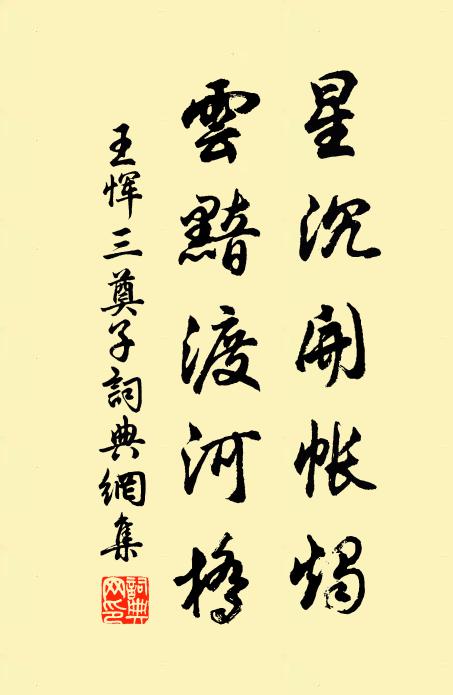 星沉開帳燭
雲黯渡河橋
王惲三奠子詞典網集
詞典網印